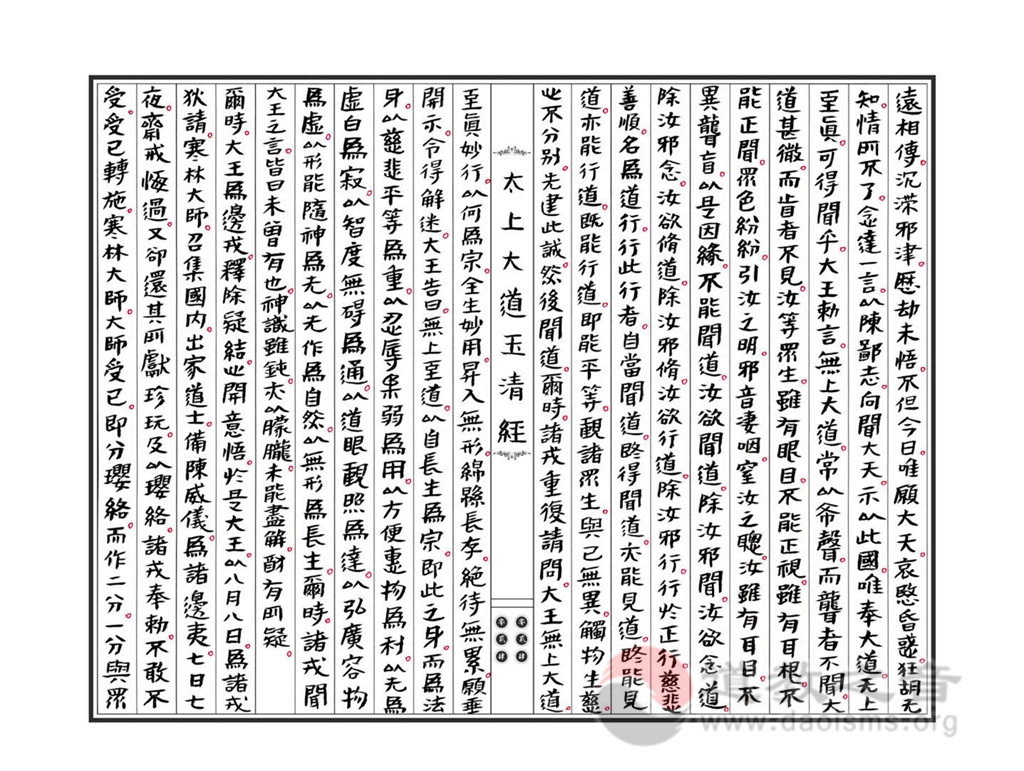 遠相傳沉滯邪津歷劫未悟不但今日唯願大天哀愍昏惑狂胡无
知情所不了念達一言以陳鄙志向聞大天示以此國唯奉大道无上
至眞可得聞乎大王勅言無上大道常以希聲而聾者不聞大
道甚微而盲者不見汝等眾生雖有眼目不能正視雖有耳根不
能正聞眾色紛紛引汝之明邪音妻咽室汝之聰汝雖有耳目不
異聾盲以是因緣不能聞道汝欲聞道除汝邪聞汝欲念道
除汝邪念汝欲脩道除汝邪脩汝欲行道除汝邪行行於正行慈悲
善順名為道行行此行者自當聞道既得聞道亦能見道既能見
道亦能行道既能行道即能平等觀諸眾生與己無異觸物生慈
心不分別先建此誠然後聞道爾時諸戎重復請問大王無上大道
太上大道玉清經
零貳肆
零貳肆
至眞妙行以何為宗全生妙用昇入無形綿縣長存絕待無累願垂
開示令得解迷大王告曰無上至道以自長生為宗即此之身而為法
身以慈悲平等為重以忍辱柔弱為用以方便惠物為利以无為
虛白為寂以智度無碍為通以道眼觀照為達以弘廣容物
為虛以形能隨神為无以无作為自然以無形為長生爾時諸戎聞
大王之言皆曰未曾有也神識雖鈍大以朦朧未能盡解尌有四疑
爾時大王為邊戎釋除疑結心開意悟於是大王以八月八日為諸戎
狄請寒林大師召集國內出家道士備陳威儀為諸邊夷七日七
夜齋戒悔過又卻還其所獻珍玩及以瓔絡諸戎奉勅不敢不
受受已轉施寒林大師大師受已即分瓔絡而作二分一分與眾
道教之音
www.daoisms.org